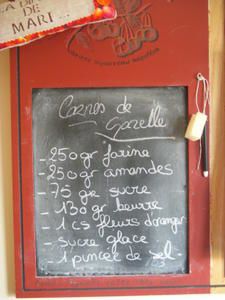 DE
MARI...
Cornes de
Gazelle
- 250 gr farine
- 250 gr amandes
- 75 gr sucre
- 130 gr beurre
- 1 cs fleurs d'oranger
- sucre glace
- 1 pincée de sel